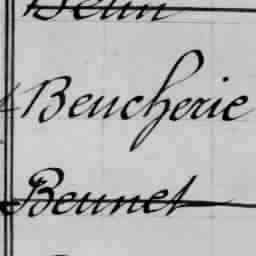 Beucherie
Beunet